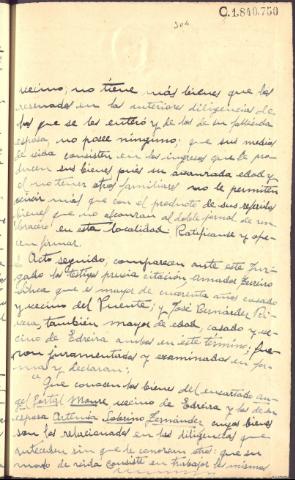 C.1.840.750
304
vecino; no tiene más bienes que los
reseñados en las anteriores diligencias de
los que se les enteró y de los de su fallecida
esposa, no posee ninguno; que sus medios
de vida consisten en los ingresos que le pro
ducen sus bienes pues su avanzada edad y
el no tener otros familiares no le permiten
vivir más que con el producto de sus referidos
bienes que no alcanzan al doble jornal de un
bracero en esta localidad. Ratificanse y ofre-
cen firmar.
Acto seguido, comparecen ante este Juz-
gado los testigos previa citación, Amador
que es mayor de cuarenta años casado
y vecino del Puente; y José Bernárdez
también mayor de edad, casado y ve-
cino de Edreira ambos en este término; fue-
ron juramentados y examinados en for-
ma y declaran:
Que conocen los bienes del encartado An-
gel Cortés Moure vecino de Edreira y los de su
esposa Sobrino Fernández cuyos bienes
son los relacionados en las diligencias que
anteceden sin que le conozcan otros; que su
modo de vida consiste en trabajar los mismos